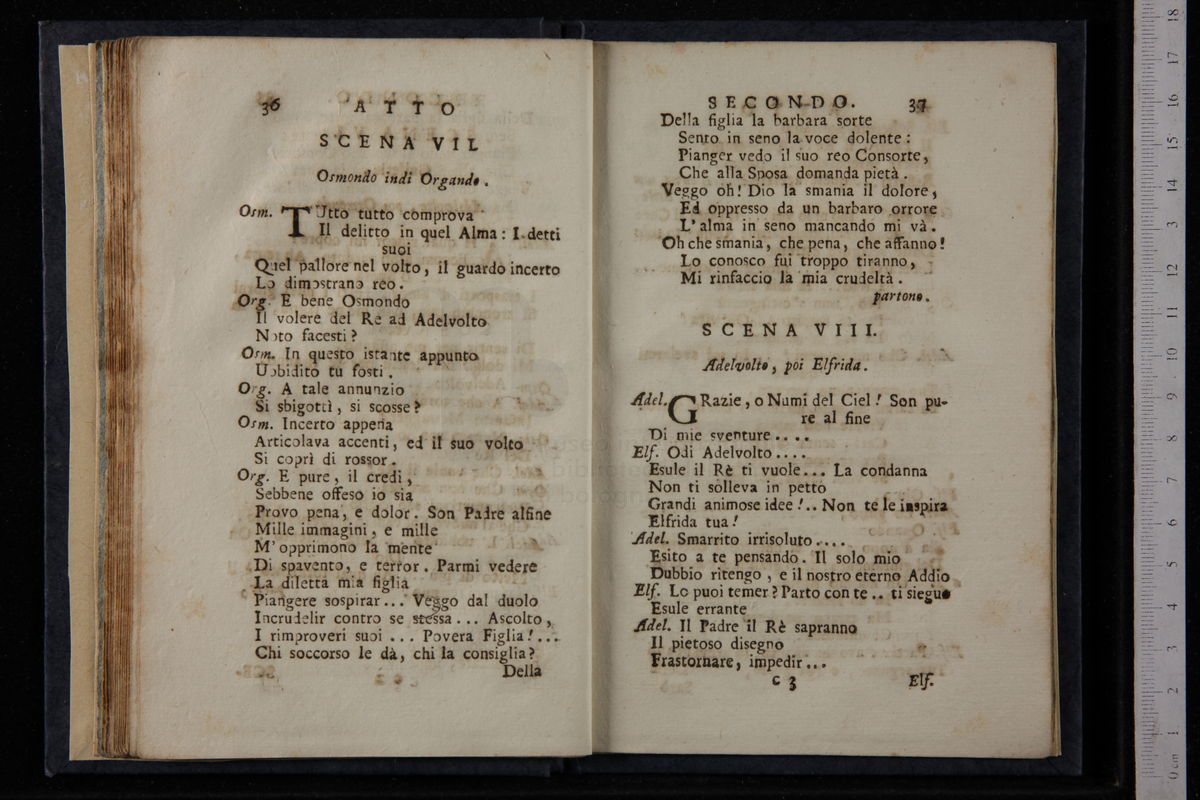 36 ATTO
SCENA VII.
Osmondo indi Orgando.
Osm. TUtto tutto comprova
Il delitto in quel Alma: I detti
suoi
Quel pallore nel volto, il guardo incerto
Lo dimostrano reo.
Org. E bene Osmondo
Il volere del Re ad Adelvolto
Noto facesti?
Osm. In questo istante appunto
Ubbidito tu fosti.
Org. A tale annunzio
Si sbigottì, si scosse?
Osm. Incerto appena
Articolava accenti, ed il suo volto
Si coprì di rossor.
Org. E pure, il credi,
Sebbene offeso io sia
Provo pena, e dolor. Son Padre alfine
Mille immagini, e mille
M' opprimono la mente
Di spavento, e terror. Parmi vedere
La diletta mia figlia
Piangere sospirar... Veggo dal duolo
Incrudelir contro se stessa... Ascolto,
I rimproveri suoi ... Povera Figlia!...
Chi soccorso le dà, chi la consiglia?
Della
SECONDO. 37
Della figlia la barbara sorte
Sento in seno la voce dolente:
Pianger vedo il suo reo Consorte,
Che alla Sposa domanda pietà.
Veggo oh! Dio la smania il dolore,
Ed oppresso da un barbaro orrore
L' alma in seno mancando mi và.
Oh che smania, che pena, che affanno!
Lo conosco fui troppo tiranno,
Mi rinfaccio la mia crudeltà.
partono.
SCENA VIII.
Adelvolto, poi Elfrida.
Adel. GRazie, o Numi del Ciel! Son pu-
re al fine
Di mie sventure....
Elf. Odi Adelvolto....
Esule il Rè ti vuole... La condanna
Non ti solleva in petto
Grandi animose idee!.. Non te le inspira
Elfrida tua!
Adel. Smarrito irrisoluto....
Esito a te pensando. Il solo mio
Dubbio ritengo, e il nostro eterno Addio
Elf. Lo puoi temer? Parto con te.. ti sieguo
Esule errante
Adel. Il Padre il Rè sapranno
Il pietoso disegno
Frastornare, impedir...
C 3 Elf.